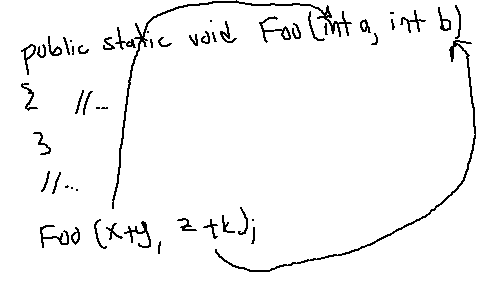 public static void Foo(int a, int b)
{ //...
}
//...
Foo (x+y, z+k);